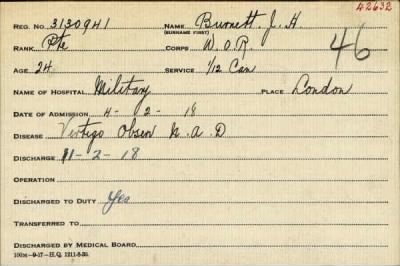 42632
REG. NO. 3130941 NAME Burnett. J. H
(SURNAME FIRST)
RANK Pte CORPS W.O.R. 46
AGE 24 SERVICE 1/12 Can
NAME OF HOSPITAL Military PLACE London
DATE OF ADMISSION 4- 2- 18
DISEASE Vertigo Obsen N.A.D
DISCHARGE 11-2-18
OPERATION
DISCHARGED TO DUTY Yes
TRANSFERRED TO
DISCHARGED BY MEDICAL BOARD